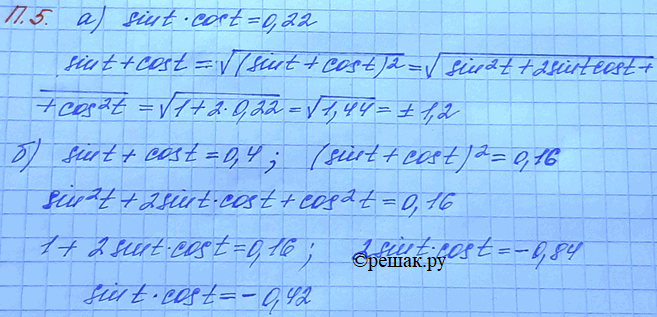 П.5. а) sint·cost=0,22
sint+cost=√(sint+cost)²=√sin²t+2sintcost+
+cos²t=√1+2·0,22=√1,44=±1,2
б) sint+cost=0,4; (sint+cost)²=0,16
sin²t+2sint·cost+cos²t=0,16
1+2sint·cost=0,16; 2sint·cost=-0,84
©решак.ру
sint·cost=-0,42